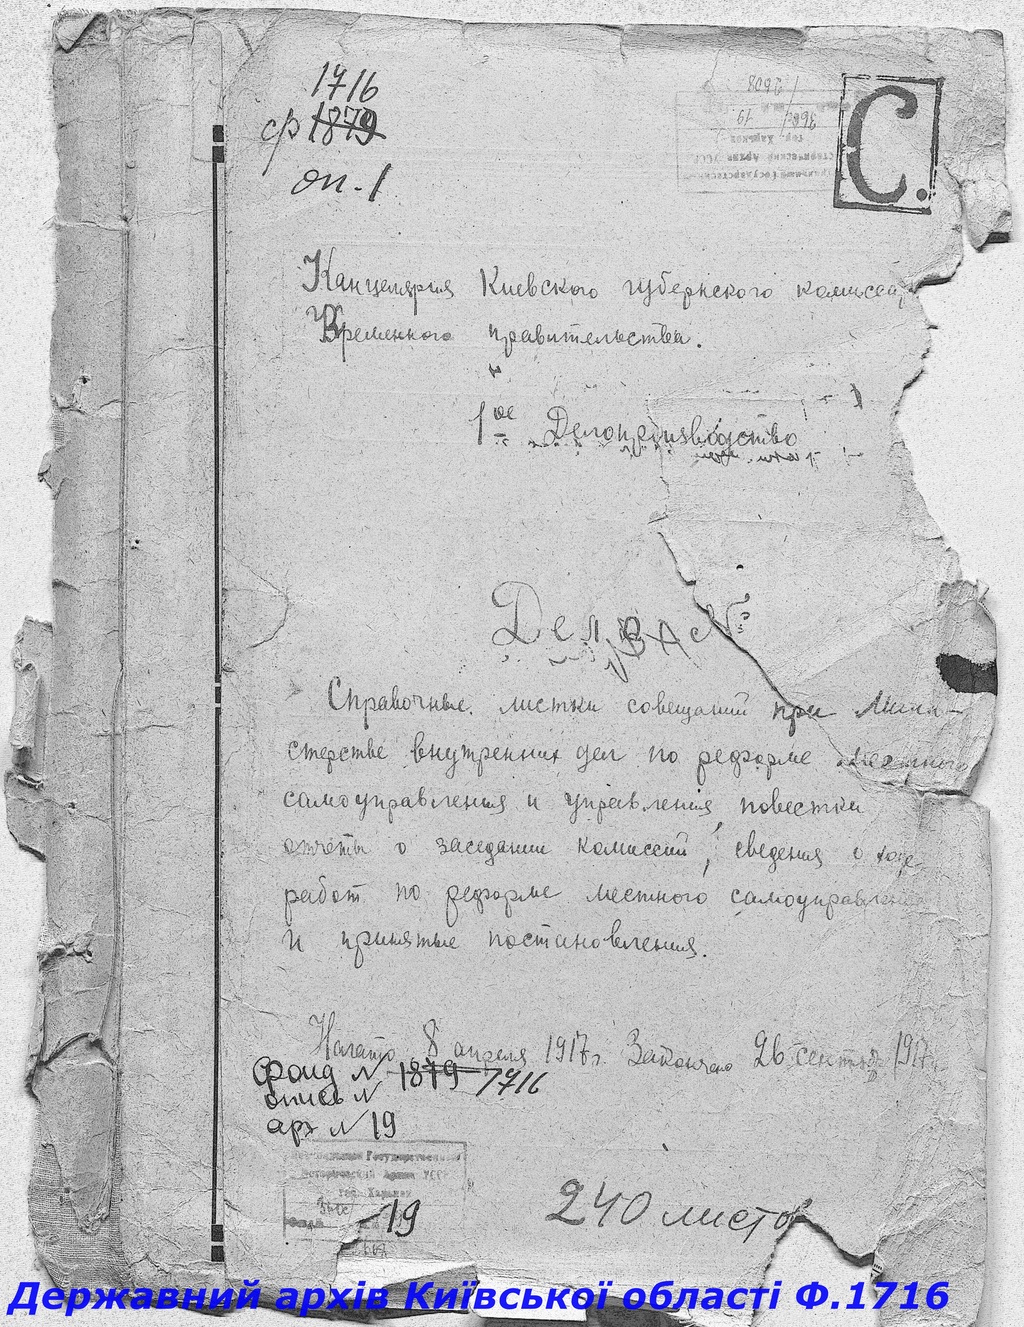 1716
ф 1879
оп. 1
С.
Канцелярия Киевского губернского комиссар
Временного правительства.
1ое Делопроизводство
Дело №
Справочные листки совещаний при Мини-
стерстве внутренних дел по реформе местного
самоуправления и управления, повестки
отчеты о заседании комиссий, сведения о ходе
работ по реформе местного самоуправлен
и принятые постановления.
Начато 8 апреля 1917 г. Закончено 26 сентяб 1917г.
Фонд № 1879 1716
опись №
арх № 19
Государственный
Исторический Архив УССР
гор. Харьков
19
240 листов
Державний архів Київської області Ф.1716